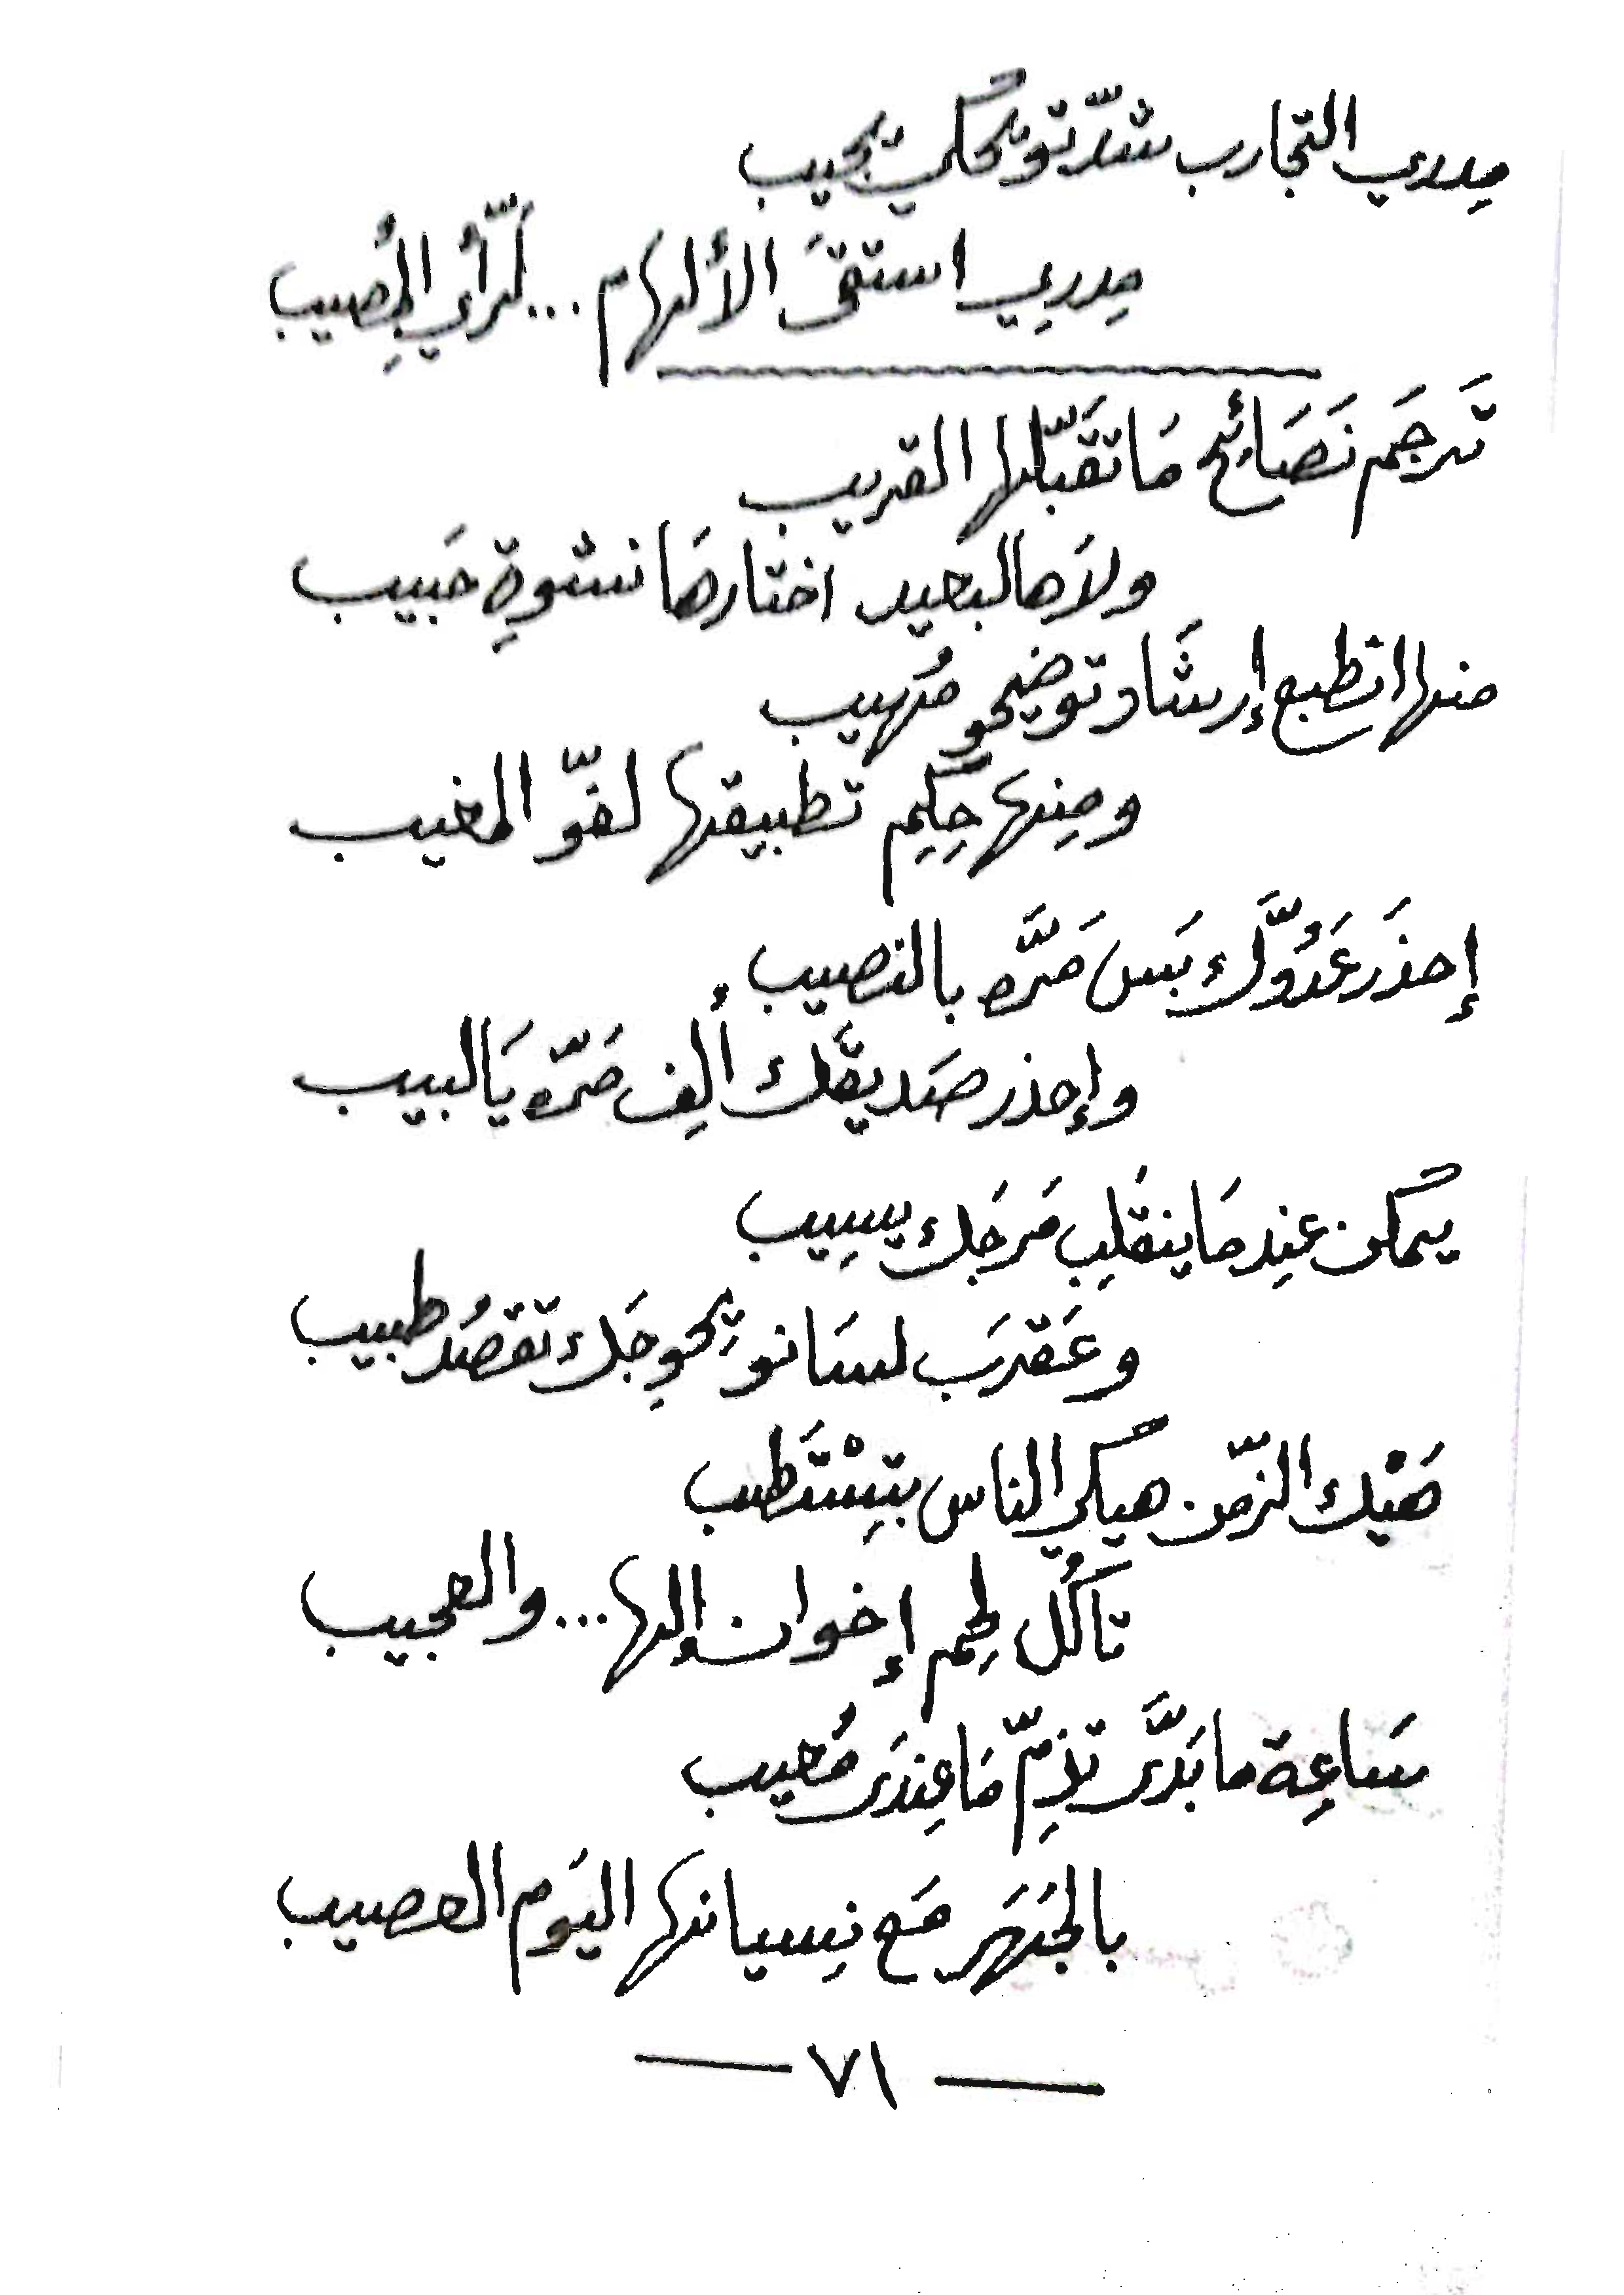 مِدري التجارب شدّتو تحكي تجيب
مِدرِي استقىَ الألهام ... لرّأي المُصِيب
تَرجَم نَصَائح مَا تقَبّلها القريب
ولاَ هالبعيد اختارهَا نشوةِ حَبيب
منها انطبع إرشَاد توضيحو مُهيب
ومِنها حِكِم تطبيقها لفّو المغيب
إحذَر عَدُوَّك بَس مَرَّه بالنصيب
وإحذر صَديقَك ألِف مَرّه يَا لبيب
يمكن عنِدما ينقَلِب مَرجَك يسِيب
وعَقرَب لسَانو تِحوِجَك تقصُد طبيب
هَيْك الزّمن هيكي الناس بتِسْتَطيب
تاكُل لحِم إخوان إلها ... والعجيب
سَاعِة ما بَدَّى تذِمّ مَا عِندَى مُعيب
بالجَهَر مَع نِسيانها اليَوم العصيب
— ٧١ —